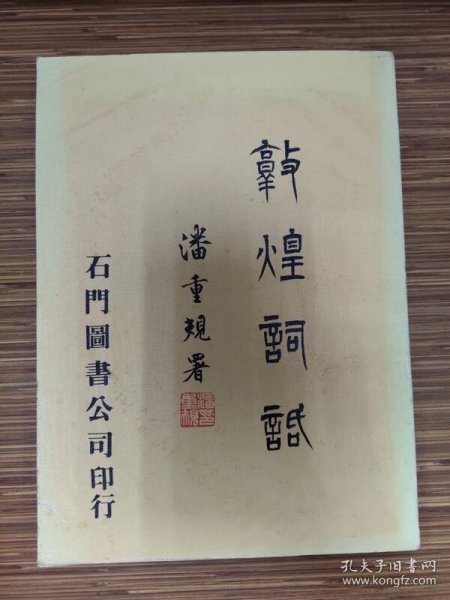 敦煌詞話
潘重規署
石門圖書公司印行
孔夫子旧书网
www.kongfz.com